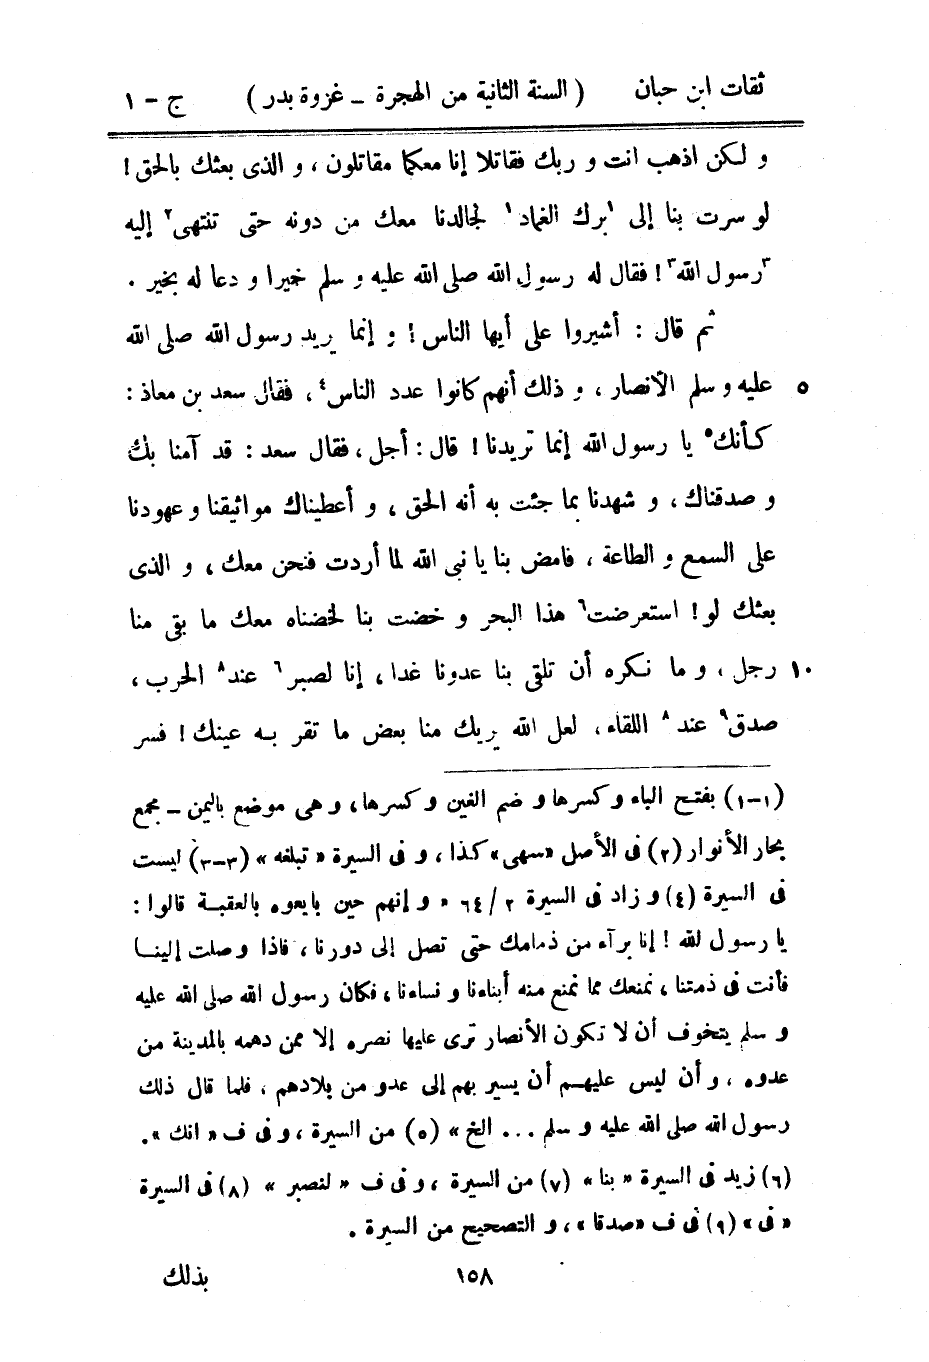 ثقات ابن حبان ( السنة الثانية من الهجرة ـ غزوة بدر ) ج - ١
و لكن اذهب انت و ربك فقاتلا إنا معكما مقاتلون ، و الذى بعثك بالحق !
لو سرت بنا إلى ١برك الغماد١ لجالدنا معك من دونه حتى تنتهى٢ إليه
٣رسول الله٣ ! فقال له رسول الله صلى الله عليه و سلم خيرا و دعا له بخير .
ثم قال : أشيروا على أيها الناس ! و إنما يريد رسول الله صلى الله
٥ عليه و سلم الأنصار ، و ذلك أنهم كانوا عدد الناس٤ ، فقال سعد بن معاذ :
كأنك٥ يا رسول الله إنما تريدنا ! قال : أجل ، فقال سعد : قد آمنا بك
و صدقناك ، و شهدنا بما جئت به أنه الحق ، و أعطيناك مواثيقنا و عهودنا
على السمع و الطاعة ، فامض بنا يا نبى الله لما أردت فنحن معك ، و الذى
بعثك لو ! استعرضت٦ هذا البحر و خضت بنا لخضناه معك ما بقى منا
١٠ رجل ، و ما نكره أن تلقى بنا عدونا غدا ، إنا لصبر٦ عند٨ الحرب ،
صدق٩ عند٨ اللقاء ، لعل الله يريك منا بعض ما تقر به عينك ! فسر
(١-١) بفتح الباء و كسرها و ضم الغين و كسرها ، و هى موضع باليمن ـ مجمع
بحار الأنوار (٢) فى الأصل «سهى» كذا ، و فى السيرة « تبلغه » (٣-٣) ليست
فى السيرة (٤) و زاد فى السيرة ٢ / ٦٤ « و إنهم حين بايعوه بالعقبة قالوا :
يا رسول الله ! إنا برآء من ذمامك حتى تصل إلى دورنا ، فاذا وصلت إلينا
فأنت فى ذمتنا ، نمنعك مما نمنع منه أبناءنا و نساءنا ، فكان رسول الله صلى الله عليه
و سلم يتخوف أن لا تكون الأنصار ترى عليها نصره إلا ممن دهمه بالمدينة من
عدوه ، و أن ليس عليهم أن يسير بهم إلى عدو من بلادهم ، فلما قال ذلك
رسول الله صلى الله عليه و سلم ... الخ » (٥) من السيرة ، و فى ف « انك » .
(٦) زيد فى السيرة « بنا » (٧) من السيرة ، و فى ف « لنصبر » (٨) فى السيرة
« فى » (٩) فى ف «صدقا » ، و التصحيح من السيرة .
١٥٨ بذلك